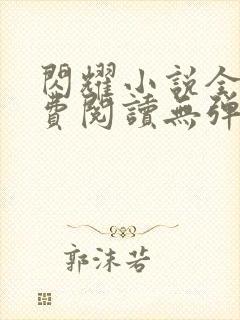 閃耀小說全
費閱讀無彈
郭沫若